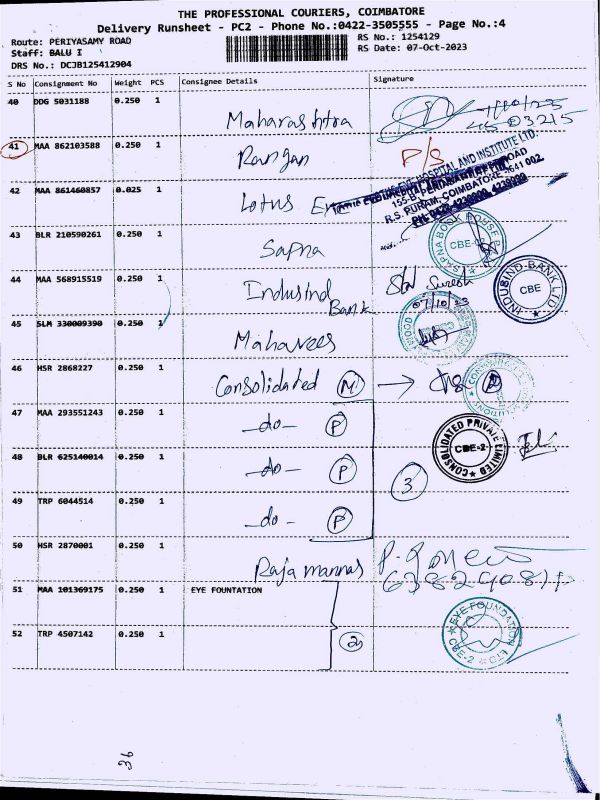 THE PROFESSIONAL COURIERS, COIMBATORE
Delivery Runsheet - PC2 - Phone No.:0422-3505555 - Page No.:4
Route: PERIYASAMY ROAD
RS No.: 1254129
Staff: BALU I
RS Date: 07-Oct-2023
DRS No.: DCJB125412904
S No Consignment No Weight PCS Consignee Details Signature
40 DDG 5031188 0.250 1 Maharashtra
41 MAA 862103588 0.250 1 Rangan P/S
42 MAA 861460857 0.025 1 Lotus Eye
EYE HOSPITAL AND INSTITUTE LTD.
R.S. PURAM, COIMBATORE - 641 002.
43 BLR 210590261 0.250 1 Sapna
SAPNA BOOK HOUSE
CBE-
44 MAA 568915519 0.250 1 Indusind Bank
07/10/23
INDUSIND BANK LTD
CBE
45 SLM 330009390 0.250 1
46 HSR 2868227 0.250 1 Consolidated M →
47 MAA 293551243 0.250 1 -do- P
CONSOLIDATED PRIVATE LIMITED
CBE-2
48 BLR 625140014 0.250 1 -do- P
3
49 TRP 6044514 0.250 1 -do- P
50 HSR 2870001 0.250 1
51 MAA 101369175 0.250 1 EYE FOUNTATION
52 TRP 4507142 0.250 1 2
EYE FOUNDATION LTD
CBE-2
36